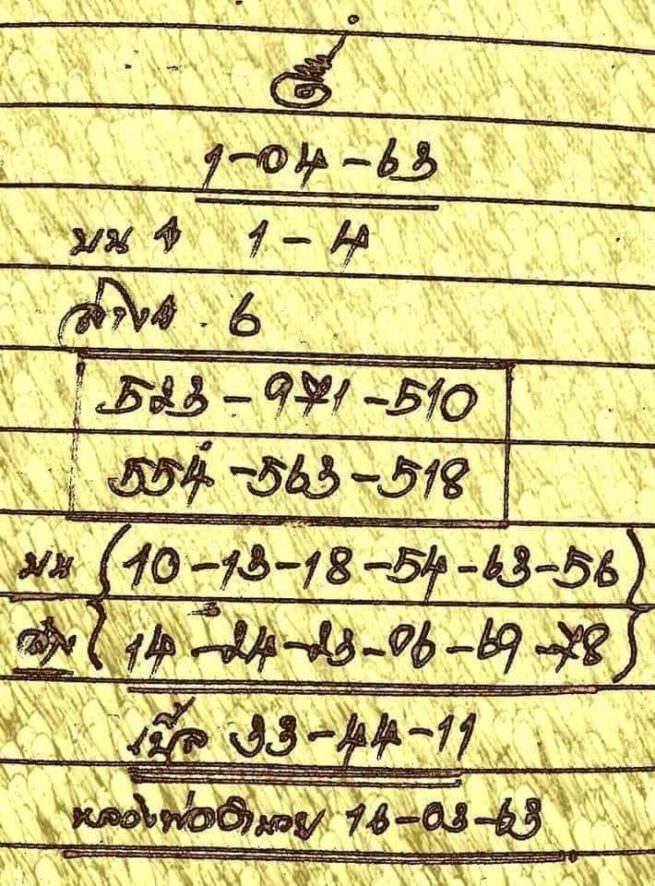 1-04-63
บน 1 1-4
ล่าง 6
523-971-510
554-563-518
บน 10-13-18-54-63-56
ล่าง 14-24-23-06-69-78
เบิ้ล 33-44-11
หลวงพ่ออำนวย 16-03-63